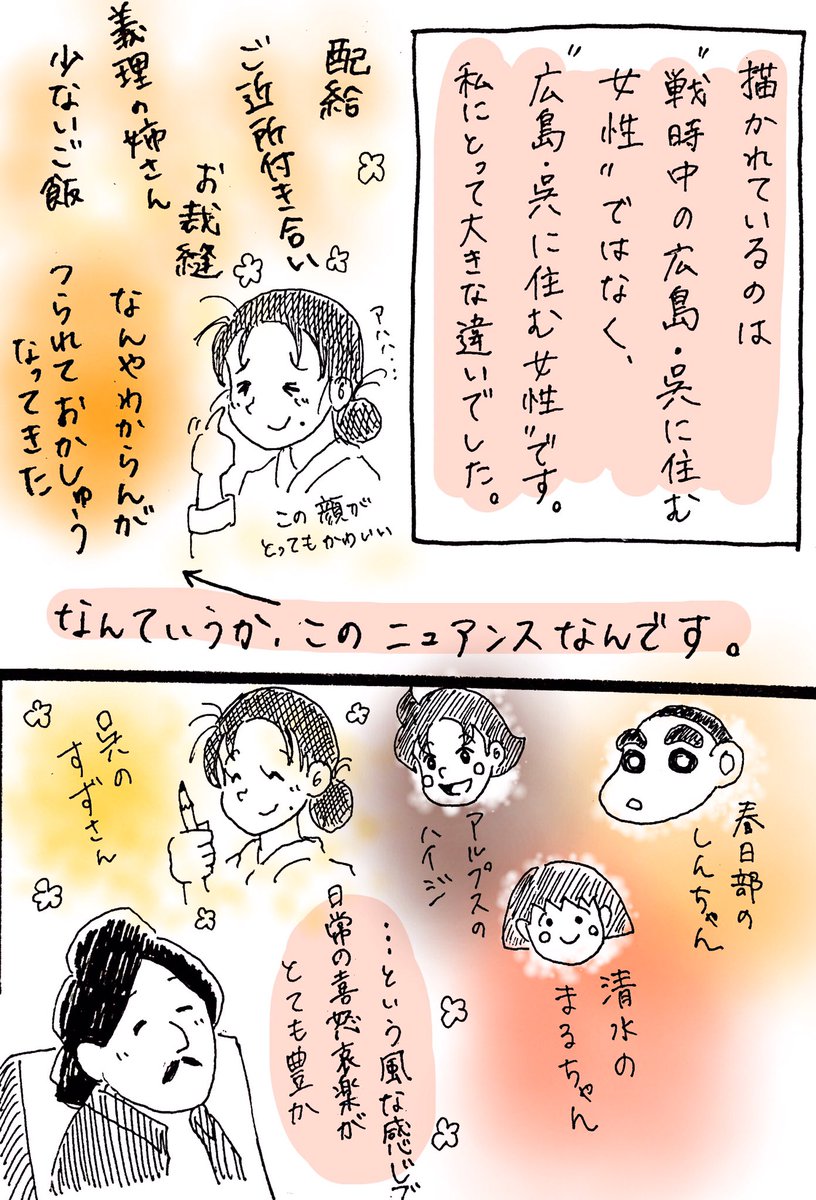 描かれているのは
"戦時中の広島・呉に住む
女性"ではなく、
"広島・呉に住む女性"です。
私にとって大きな違いでした。
配給
ご近所付き合い
お裁縫
義理の姉さん
少ないご飯
アハハ…
なんやわからんが
つられておかしゅう
なってきた
この顔が
とってもかわいい
なんていうか、このニュアンスなんです。
春日部の
しんちゃん
アルプスの
ハイジ
清水の
まるちゃん
呉の
すずさん
…という風な感じで
日常の喜怒哀楽が
とても豊か